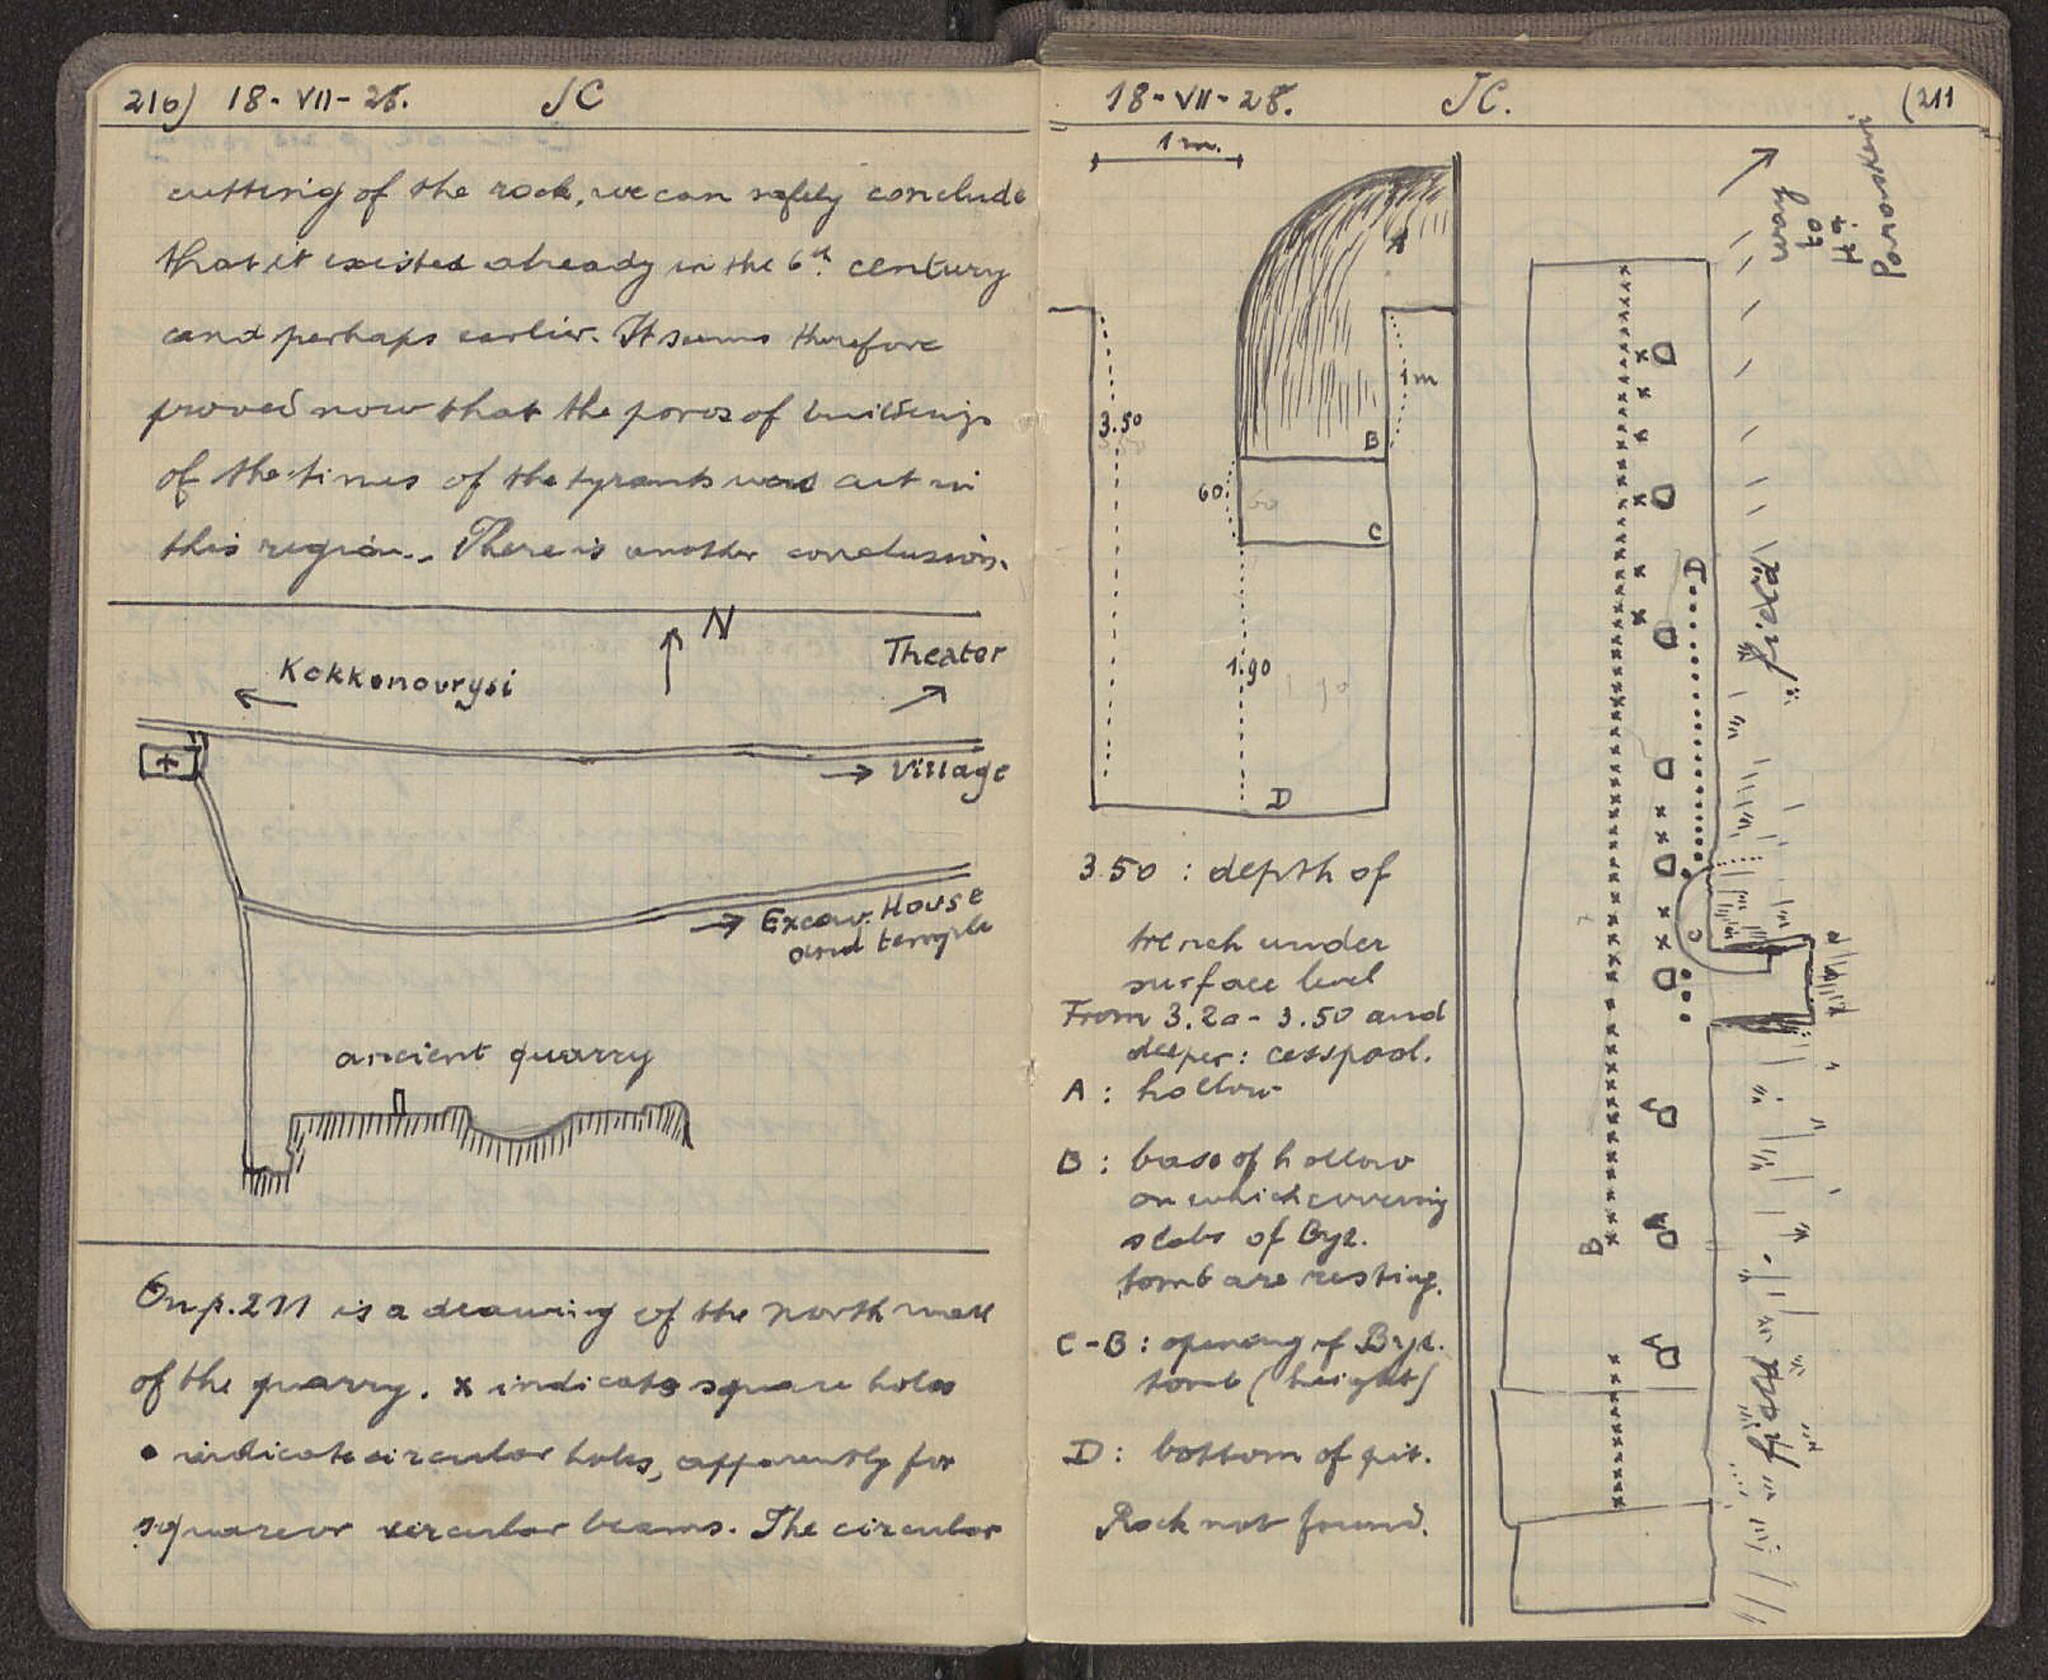 210) 18-VII-28. JC
cutting of the rock, we can safely conclude
that it existed already in the 6th. century
and perhaps earlier. It seems therefore
proved now that the poros of buildings
of the times of the tyrants was cut in
this region.. There is another conclusion.
N
Theater
Kokkonovrysi
Village
Excav. House
and temple
ancient quarry
On p. 211 is a drawing of the north wall
of the quarry. x indicate square holes
• indicate circular holes, apparently for
square or circular beams. The circular
18-VII-28. JC. (211
1 m.
A
1m
3.50
B
60
60
C
1.90
1 90
D
3.50 : depth of
trench under
surface level
From 3.20 - 3.50 and
deeper: cesspool.
A : hollow
B : base of hollow
on which covering
slabs of Byz.
tomb are resting.
C-B : opening of Byz.
tomb (height)
D : bottom of pit.
Rock not found.
way
to
H^a.
Paraskevi
D
field
C
A
A
B
A
field